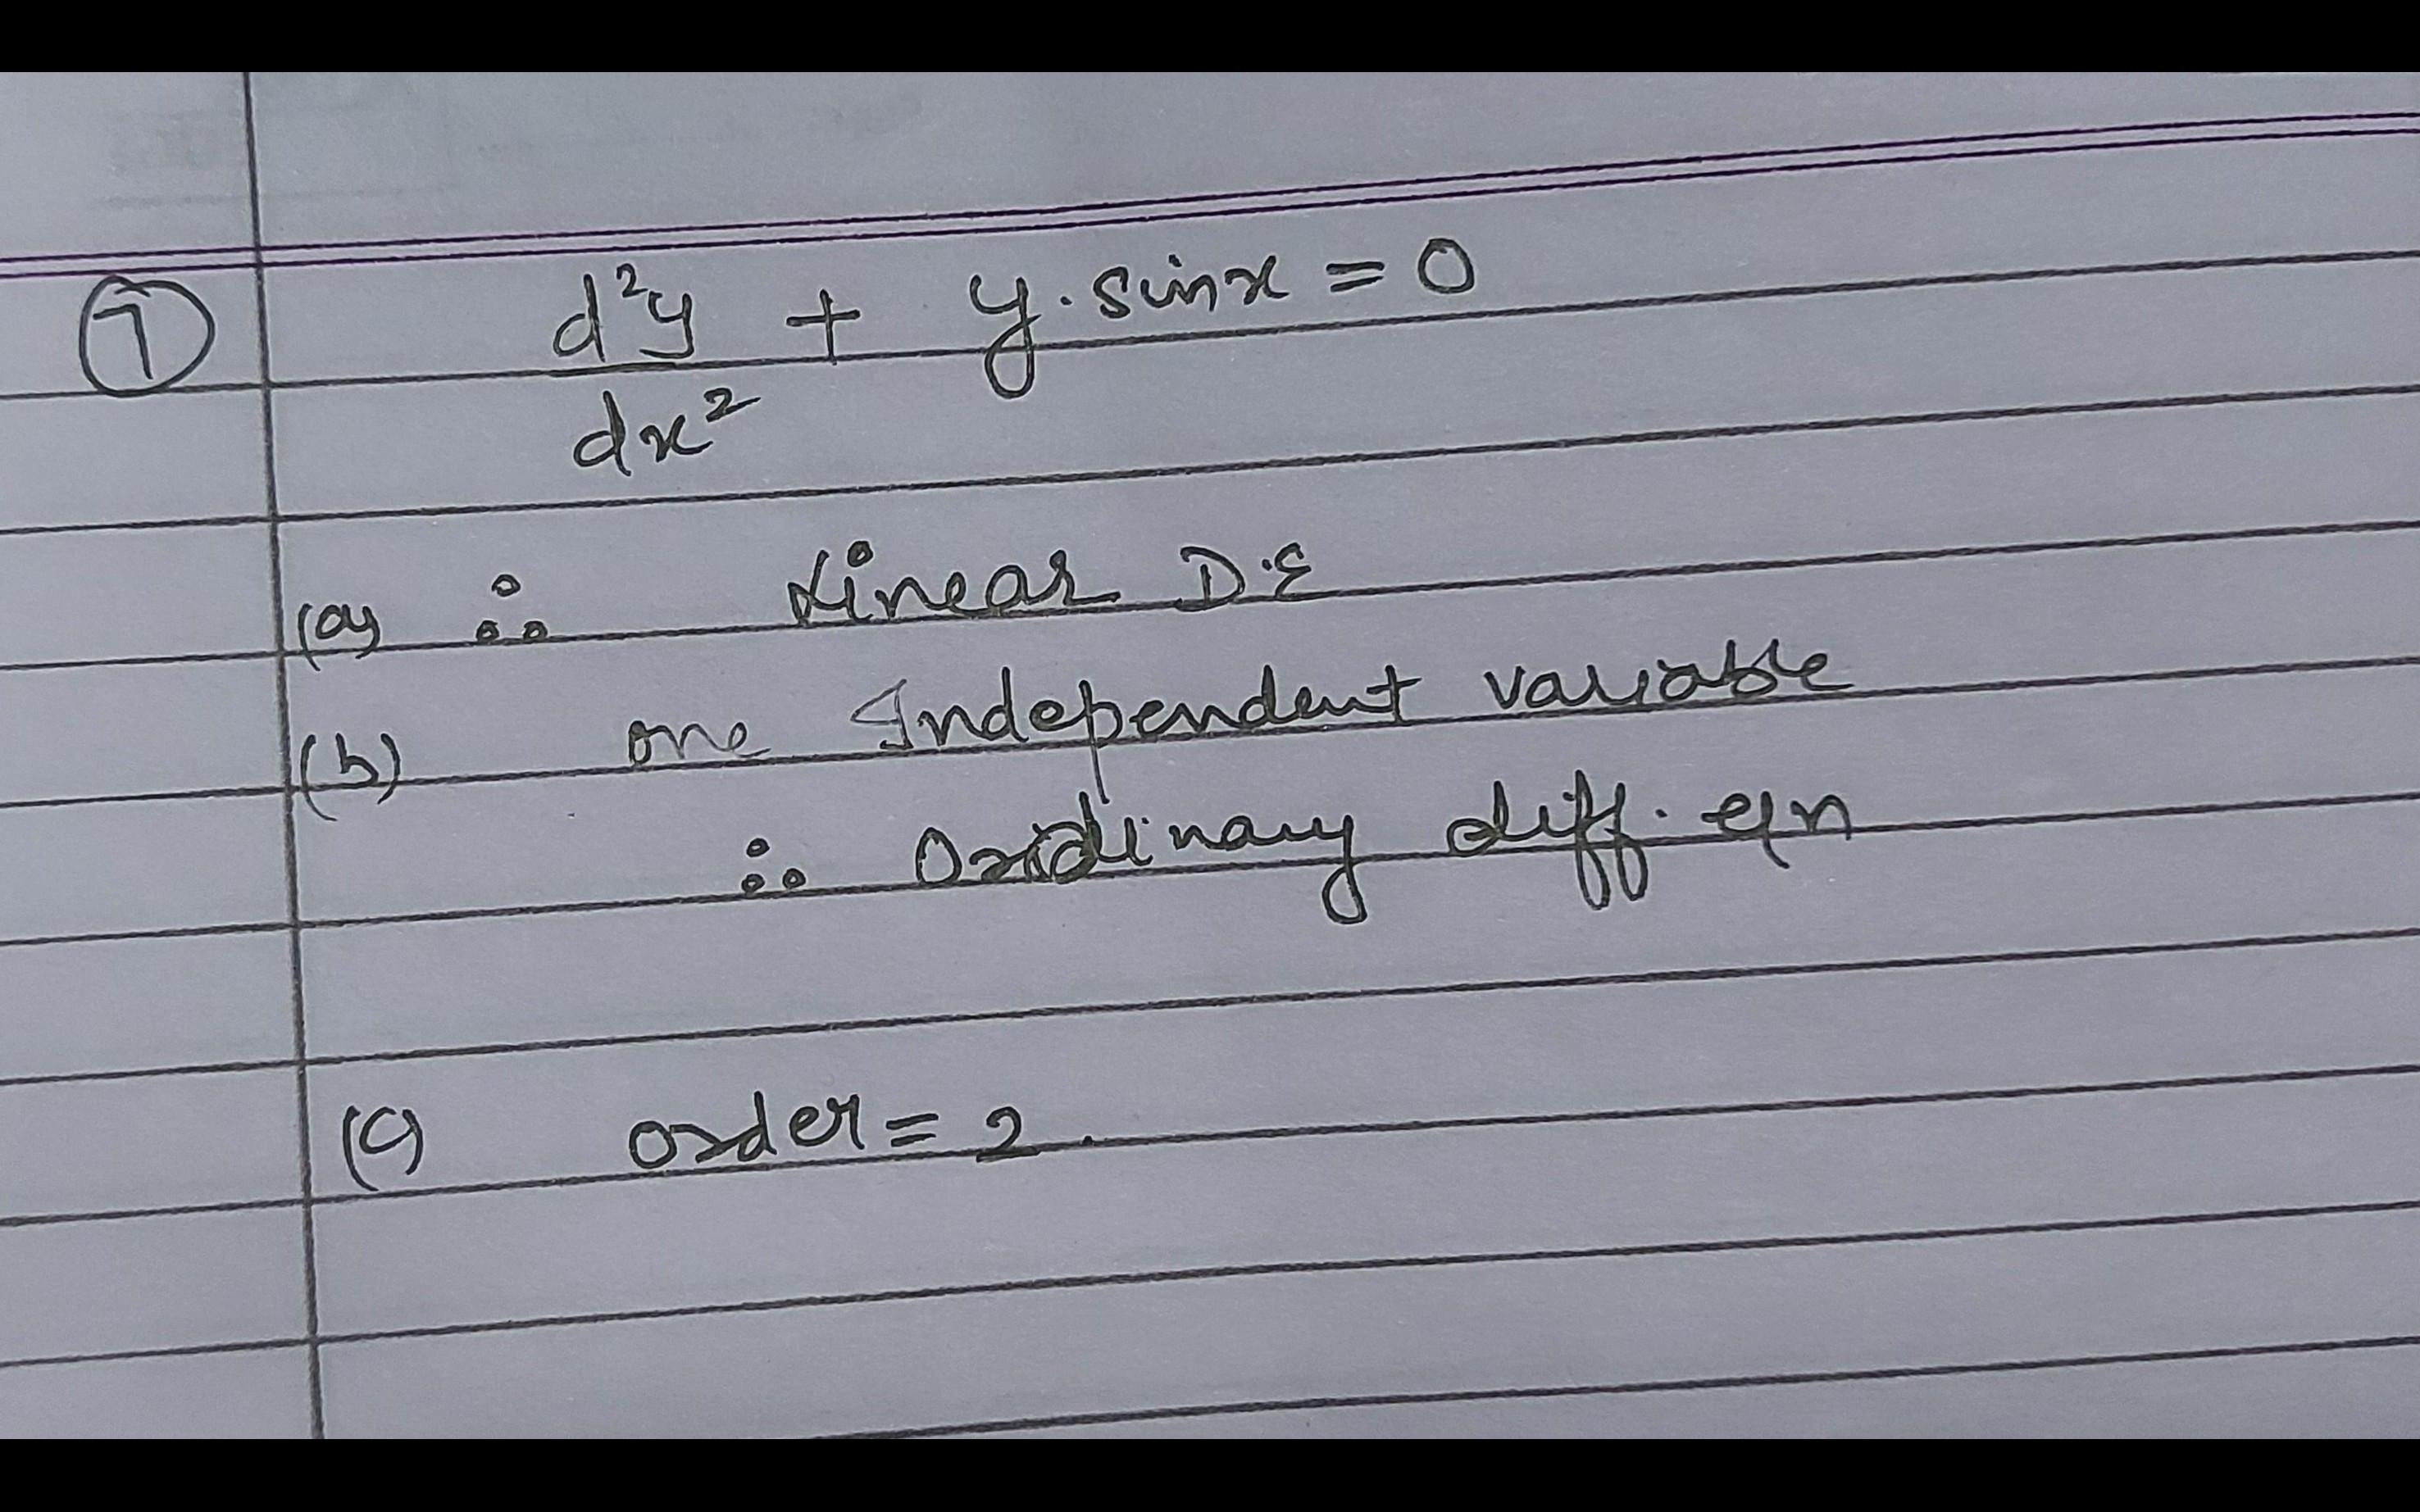 ⑦ d²y/dx² + y·sinx = 0
(a) ∴ Linear D.E
(b) one Independent variable
∴ Ordinary diff. eqn
(c) order = 2.